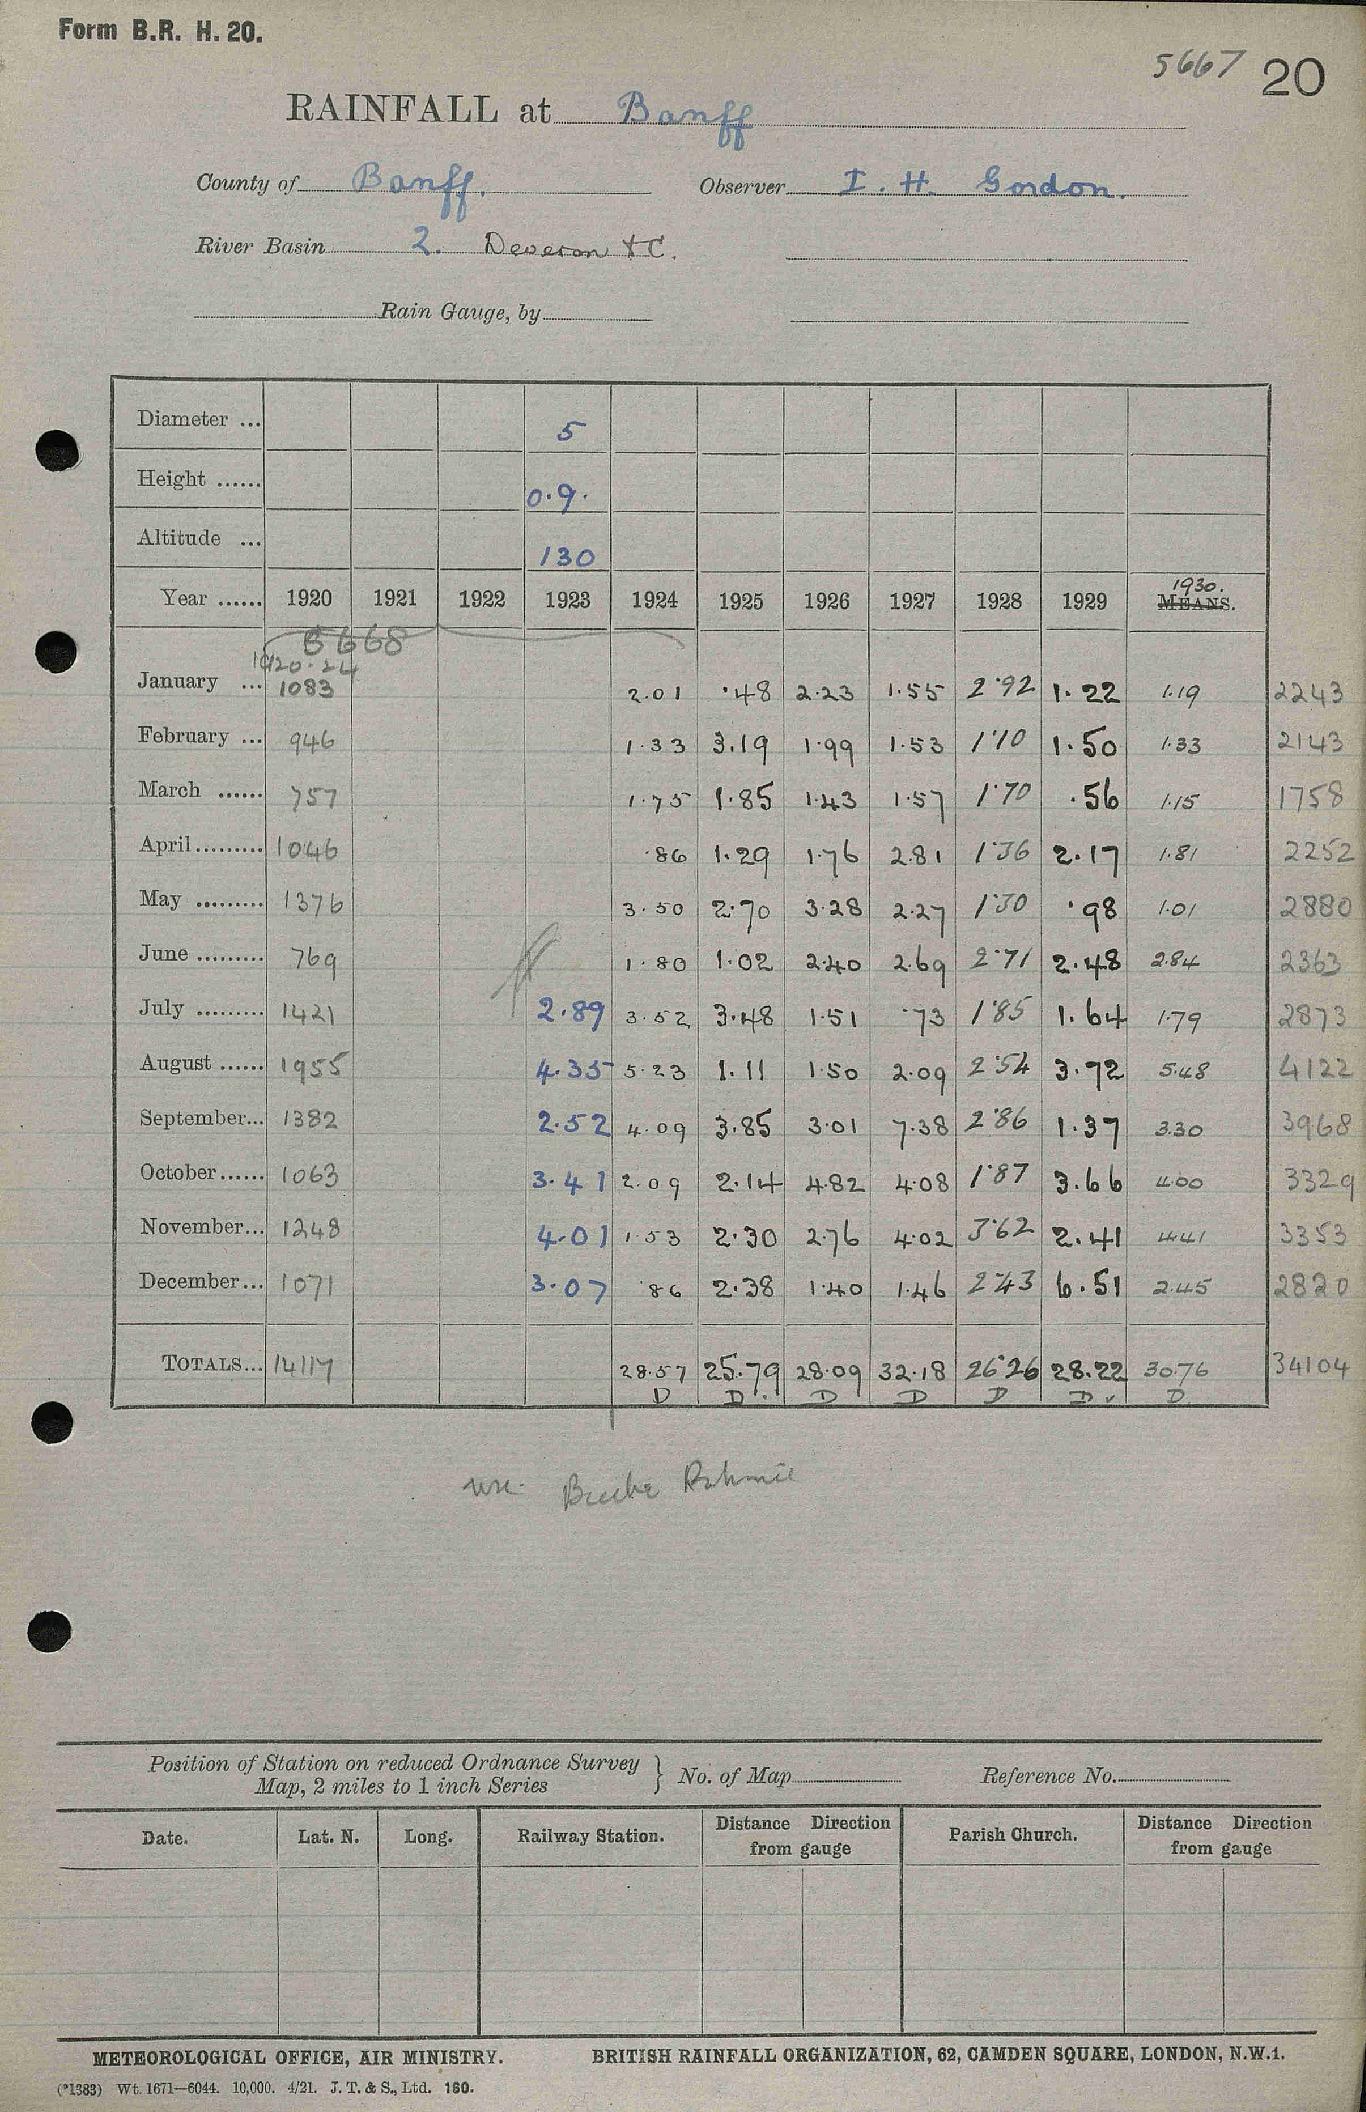 Form B.R. H. 20.
5667 20
RAINFALL at Banff
County of Banff. Observer I. H. Gordon.
River Basin 2. Deveron &C.
Rain Gauge, by
Diameter ... 5
Height ...... 0.9.
Altitude ... 130
Year ...... 1920 1921 1922 1923 1924 1925 1926 1927 1928 1929 1930. MEANS.
5668
1920-24
January ... 1083 2.01 .48 2.23 1.55 2.92 1.22 1.19 2243
February ... 946 1.33 3.19 1.99 1.53 1.10 1.50 1.33 2143
March ...... 757 1.75 1.85 1.43 1.57 1.70 .56 1.15 1758
April......... 1046 .86 1.29 1.76 2.81 1.36 2.17 1.81 2252
May ......... 1376 3.50 2.70 3.28 2.27 1.30 .98 1.01 2880
June ......... 769 1.80 1.02 2.40 2.69 2.71 2.48 2.84 2363
July ......... 1421 2.89 3.52 3.48 1.51 .73 1.85 1.64 1.79 2873
August ...... 1955 4.35 5.23 1.11 1.50 2.09 2.54 3.72 5.48 4122
September... 1382 2.52 4.09 3.85 3.01 7.38 2.86 1.37 3.30 3968
October...... 1063 3.41 2.09 2.14 4.82 4.08 1.87 3.66 4.00 3329
November... 1248 4.01 1.53 2.30 2.76 4.02 3.62 2.41 4.41 3353
December... 1071 3.07 .86 2.38 1.40 1.46 2.43 6.51 2.45 2820
TOTALS... 14117 28.57 25.79 28.09 32.18 26.26 28.22 30.76 34104
D D. D D D D D
use
Position of Station on reduced Ordnance Survey
Map, 2 miles to 1 inch Series } No. of Map Reference No.
Date. Lat. N. Long. Railway Station. Distance Direction from gauge Parish Church. Distance Direction from gauge
METEOROLOGICAL OFFICE, AIR MINISTRY. BRITISH RAINFALL ORGANIZATION, 62, CAMDEN SQUARE, LONDON, N.W.1.
(*1383) Wt. 1671—6044. 10,000. 4/21. J. T. & S., Ltd. 160.